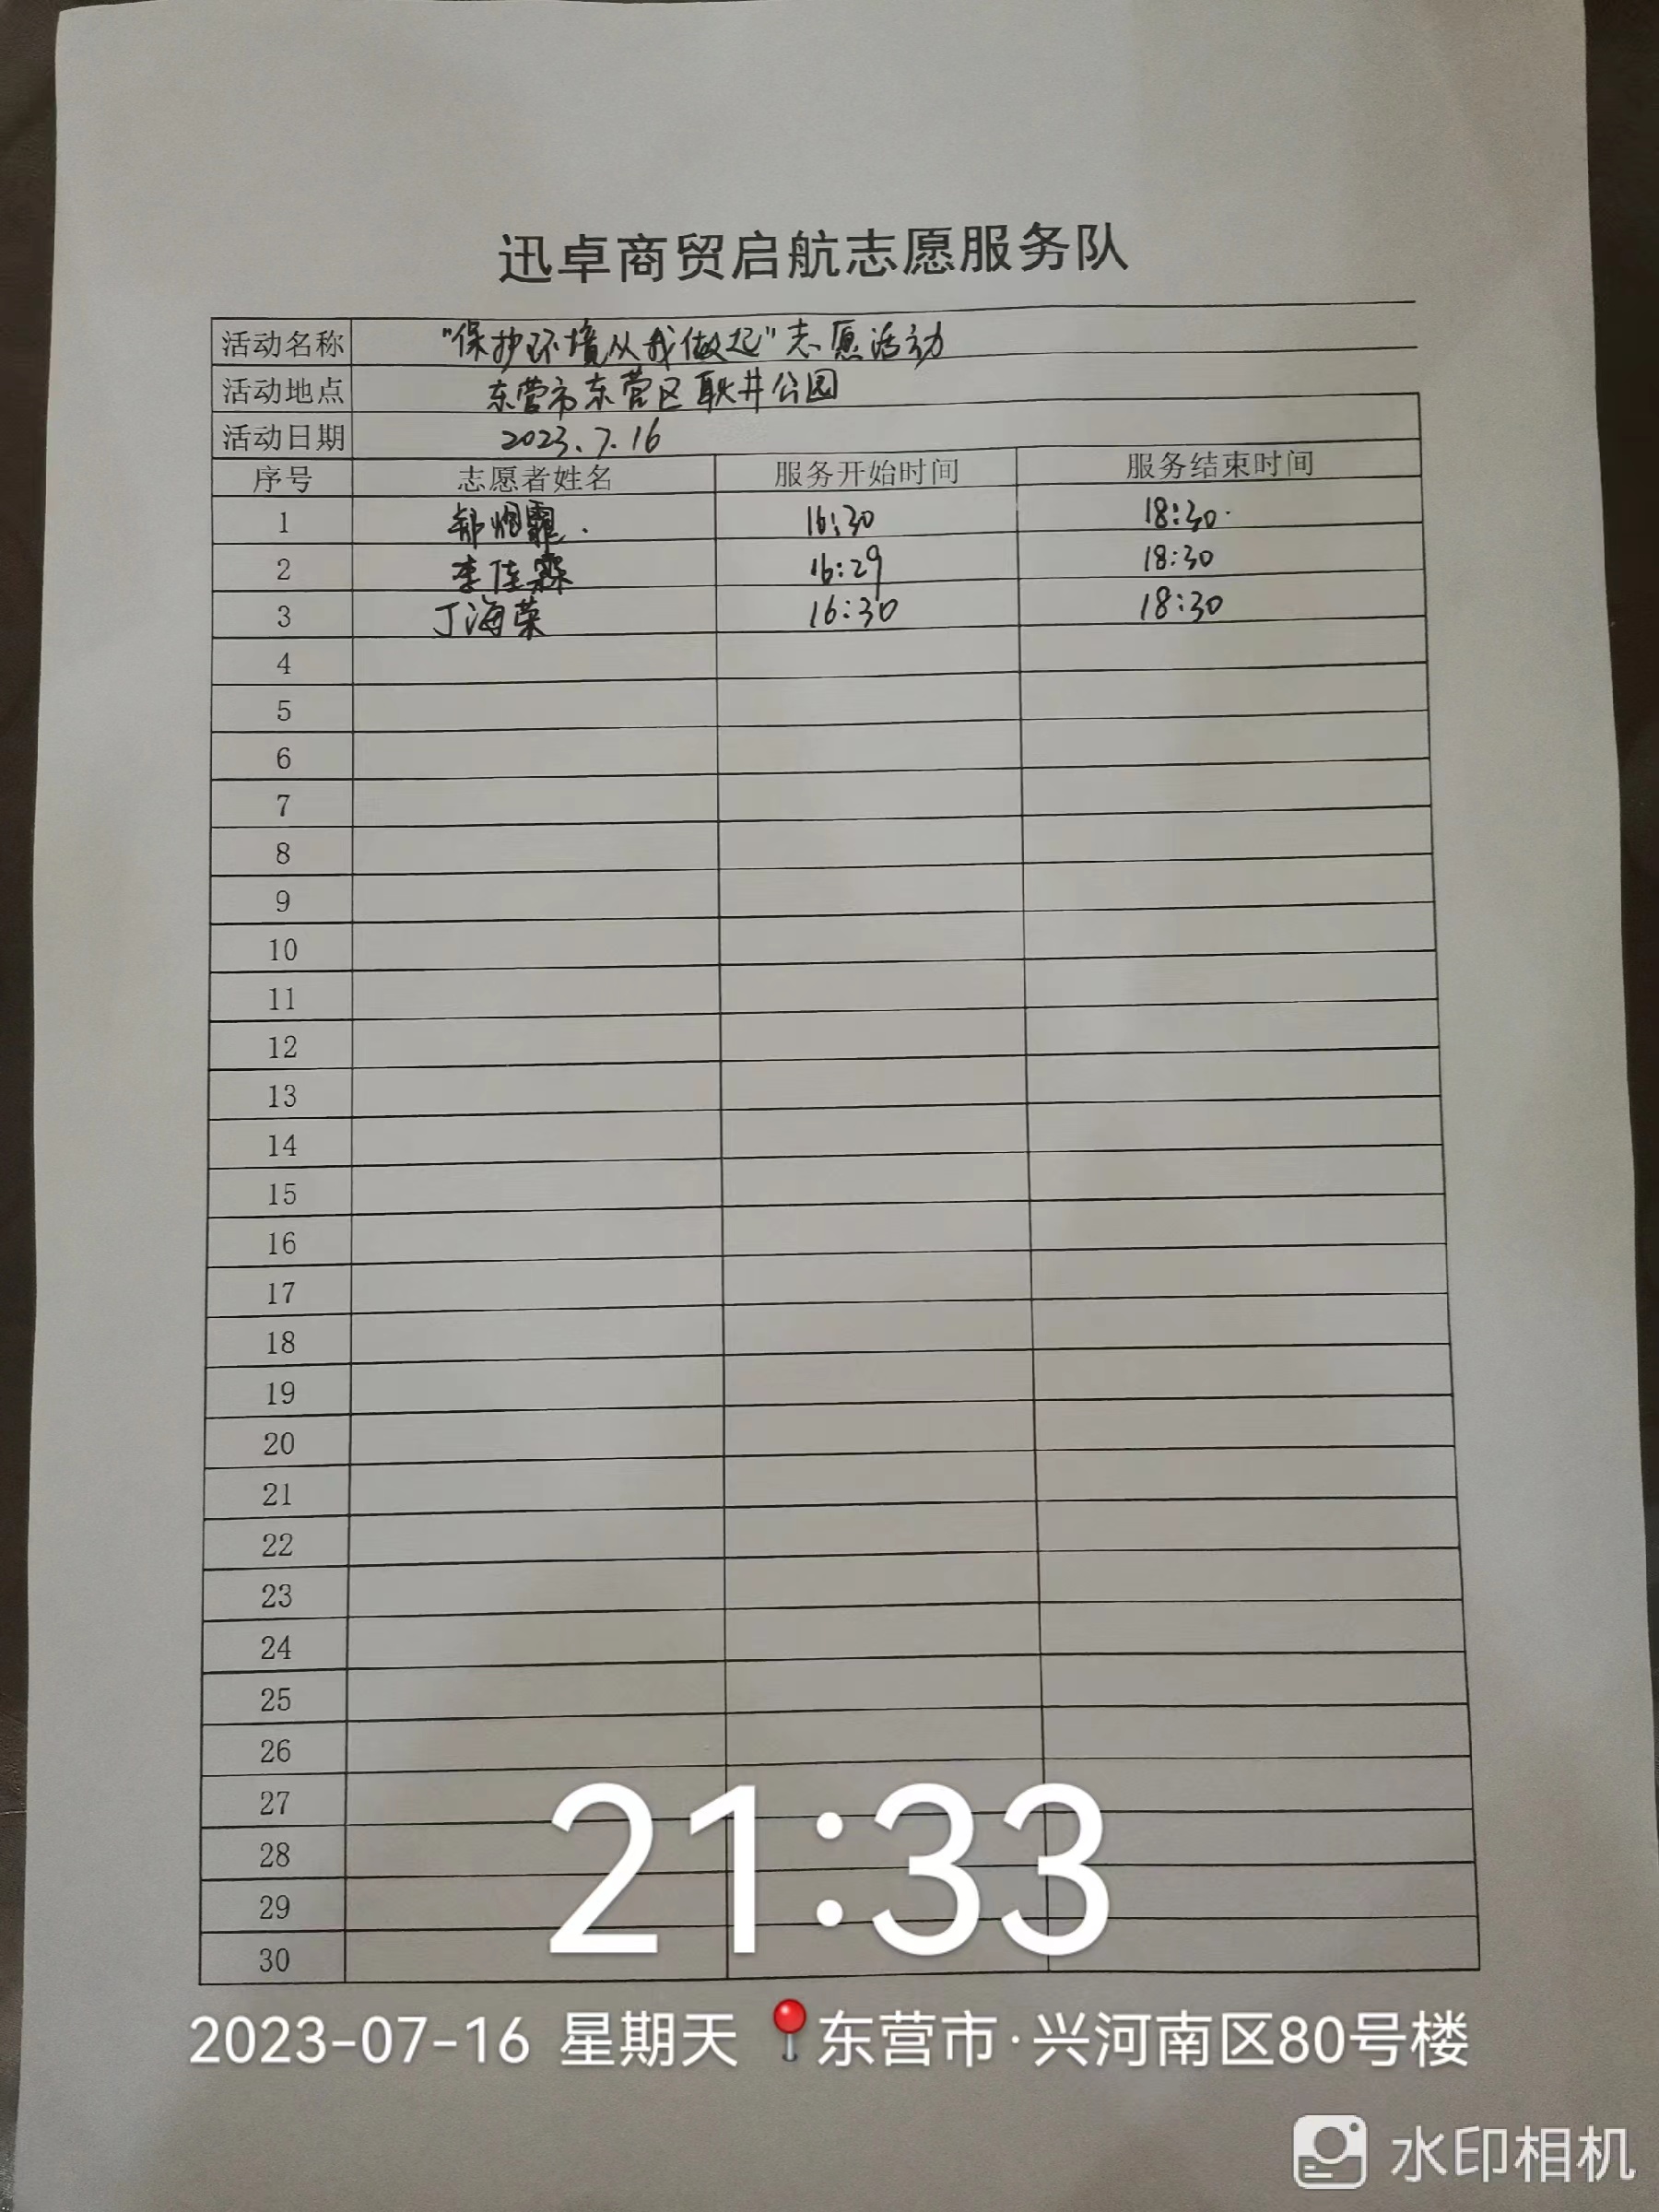 迅卓商贸启航志愿服务队
活动名称 "保护环境从我做起"志愿活动
活动地点 东营市东营区耿井公园
活动日期 2023.7.16
序号 志愿者姓名 服务开始时间 服务结束时间
1 16:30 18:30
2 李佳霖 16:29 18:30
3 丁海荣 16:30 18:30
4
5
6
7
8
9
10
11
12
13
14
15
16
17
18
19
20
21
22
23
24
25
26
27
28
29
30
21:33
2023-07-16 星期天 东营市·兴河南区80号楼
水印相机